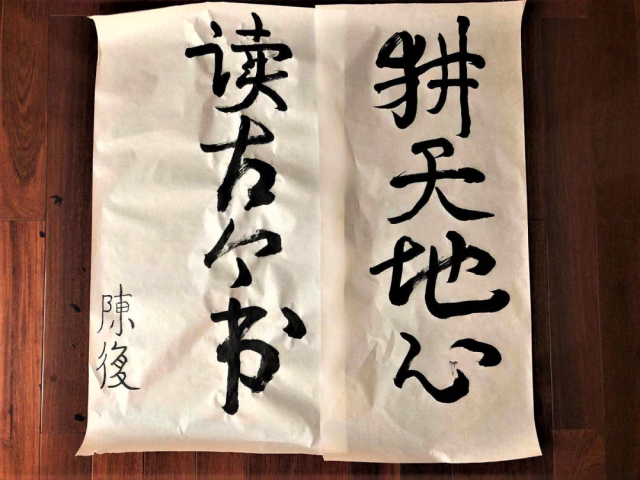 耕天地心
读古今书
陳復